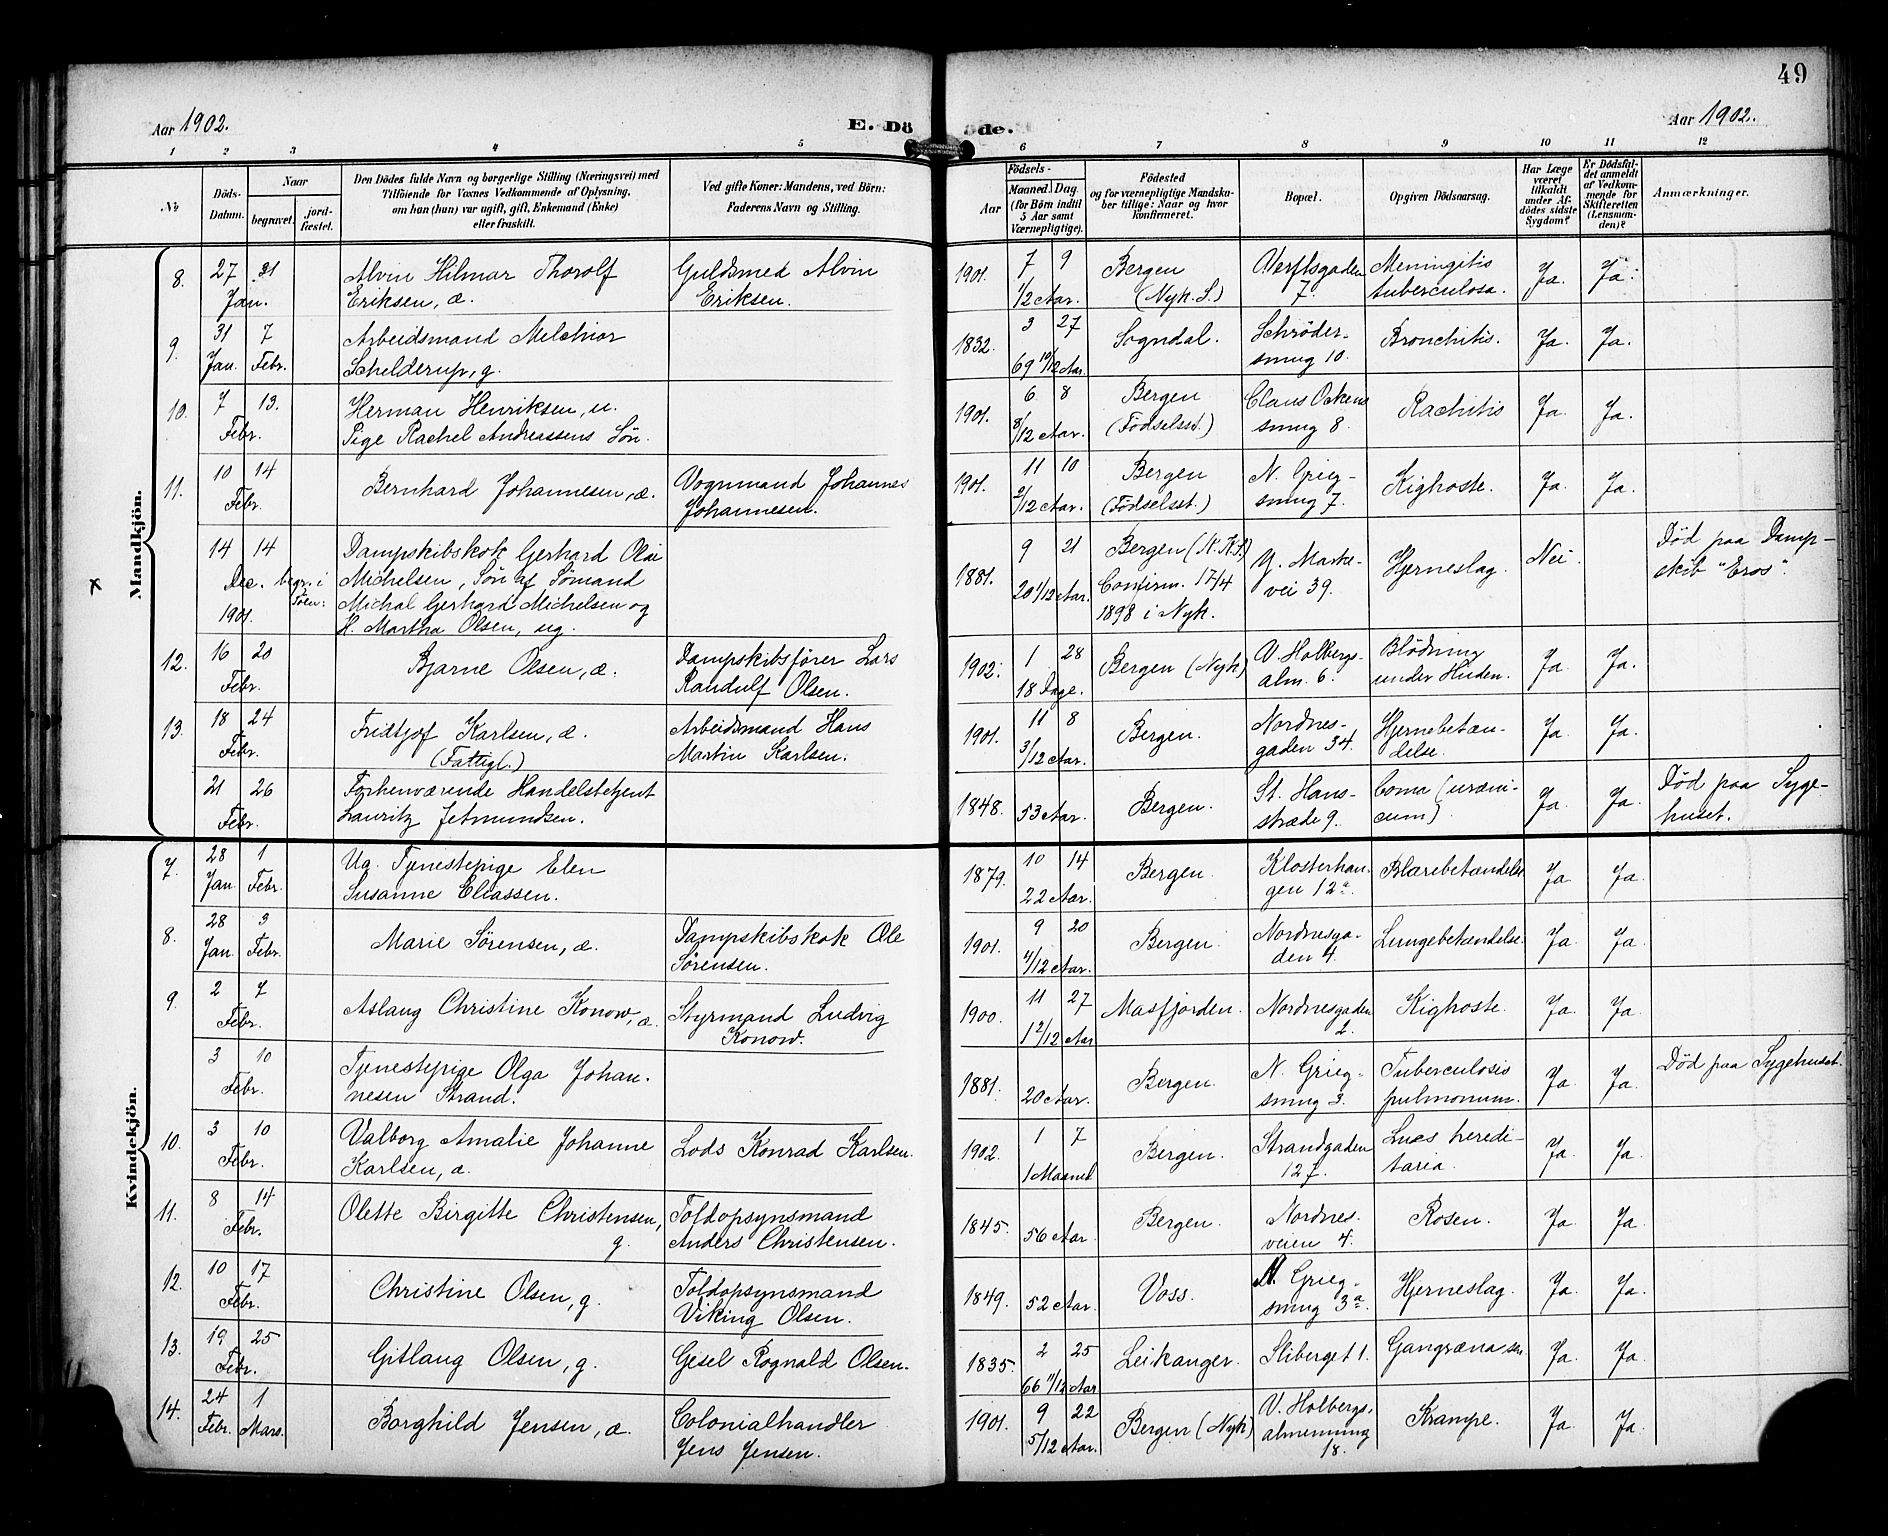 49
Aar 1902.
E. Dö
öde.
Aar 1902.
1 2 3 4 5 6 7 8 9 10 11 12
No
Döds-
Datum.
Naar
begravet.
jord-
fæstet.
Den Dödes fulde Navn og borgerlige Stilling (Næringsvei) med
Tilföiende for Voxnes Vedkommende af Oplysning,
om han (hun) var ugift, gift, Enkemand (Enke)
eller fraskilt.
Ved gifte Koner: Mandens, ved Börn:
Faderens Navn og Stilling.
Födsels-
Aar
Maaned. Dag
(for Börn indtil
5 Aar samt
Værnepligtige).
Födested
og for værnepligtige Mandska-
ber tillige: Naar og hvor
konfirmeret.
Bopæl.
Opgiven Dödsaarsag.
Har Læge
været
tilkaldt
under Af-
dödes sidste
Sygdom?
Er Dödsfal-
det anmeldt
af Vedkom-
mende for
Skifteretten
(Lensman-
den)?
Anmærkninger.
Mandkjön.
8. 27 31 Alvin Hilmar Thorolf Guldsmed Alvin 1901. 7 9 Bergen Verftsgaden Meningitis Ja. Ja.
Jan. Eriksen, æ. Eriksen. 1/2 Aar. (Nyk. S.) 7. tuberculosa.
9. 31 7 Arbeidsmand Melchior 1832. 3 27 Sogndal. Schröder- Bronchitis. Ja. Ja.
Jan. Febr. Schelderup, g. 69 10/12 Aar. smug 10.
10. 7 13. Herman Henriksen, u. 1901. 6 8 Bergen Claus Ockens Rachitis Ja. Ja.
Febr. Pige Rachel Andreassens Sön. 8/12 Aar. (Födselsst.) smug 8.
11. 10 14 Bernhard Johannesen, æ. Vognmand Johannes 1901. 11 10 Bergen N. Grieg- Kighoste. Ja. Ja.
Febr. Johannesen. 2/12 Aar. (Födselsst.) smug 7.
x 14 14 Dampskibskok Gerhard Olai 1881. 9 21 Bergen (N. K.) Y. Marke- Hjerneslag. Nei. Död paa Damp-
Dec. begr. i Michelsen, Sön af Sömand 20 1/12 Aar. Confirm. 17/4 vei 39. skib "Eros".
Söen: Michal Gerhard Michelsen og 1898 i Nyk.
1901. H. Martha Olsen, ug.
12. 16 20 Bjarne Olsen, æ. Dampskibsförer Lars 1902. 1 28 Bergen (Nyk) V. Holbergs- Blödning Ja. Ja.
Febr. Randulf Olsen. 18 Dage. alm. 6. under Huden.
13. 18 24 Fridtjof Karlsen, æ. Arbeidsmand Hans 1901. 11 8 Bergen. Nordnes- Hjernebetæn- Ja Ja.
Febr. (Fattigl.) Martin Karlsen. 3/12 Aar. gaden 34. delse.
21 26 Forhenværende Handelsbetjent 1848. 53 Aar. Bergen. St. Hans- Coma (uræmi- Ja. Ja. Död paa Syge-
Febr. Lauritz Jetmundsen. stræde 9. cum). huset.
Kvindekjön.
7. 28 1 Ug. Tjenestepige Elen 1879. 10 14 Bergen. Klosterhau- Blærebetændelse Ja Ja.
Jan. Febr. Susanne Eliassen. 22 Aar. gen 12a.
8. 28 3 Marie Sörensen, æ. Dampskibskok Ole 1901. 9 20 Bergen. Nordnesga- Lungebetændelse. Ja. Ja.
Jan. Febr. Sörensen. 4/12 Aar. den 4.
9. 2 7 Aslaug Christine Konow, æ. Styrmand Ludvig 1900. 11 27 Masfjorden. Nordnesgaden Kighoste. Ja. Ja.
Febr. Konow. 1 2/12 Aar 2.
3 10 Tjenestepige Olga Johan- 1881. 20 Aar. Bergen. N. Grieg- Tuberculosis Ja. Ja. Död paa Sygehuset.
Febr. nesen Strand. smug 3. pulmonum.
10. 3 10 Valborg Amalie Johanne Lods Konrad Karlsen. 1902. 1 7 Bergen. Strandgaden Lues heredi- Ja. Ja.
Febr. Karlsen, æ. 1 Maaned 127. taria.
11. 8 14 Olette Birgitte Christensen, Toldopsynsmand 1845. 56 Aar. Bergen. Nordnes- Rosen. Ja. Ja.
Febr. g. Anders Christensen. veien 4.
12. 10 17 Christine Olsen, g. Toldopsynsmand 1849. 52 Aar. Voss. N. Grieg- Hjerneslag. Ja. Ja.
Febr. Viking Olsen. smug 3a.
13. 19 25 Gitlaug Olsen, g. Gesel Rognald Olsen. 1835. 2 25 Leikanger. Sliberget 1. Gangræna sen Ja. Ja.
Febr. 66 11/12 Aar
14. 24 1 Borghild Jensen, æ. Colonialhandler 1901. 9 22 Bergen (Nyk) V. Holbergs- Krampe. Ja. Ja.
Febr. Mars. Jens Jensen. 5/12 Aar. almenning
18.